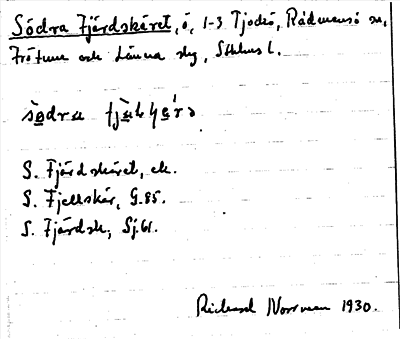 Södra Fjärdskäret, ö, 1-3 Tjockö, Rådmansö sn,
Frötuna och Länna skg, Sthlms l.
södra
S. Fjärdskäret, ek.
S. Fjellskär, G.85.
S. Fjärdsk, Sj.61.
Richard Norrman 1930.